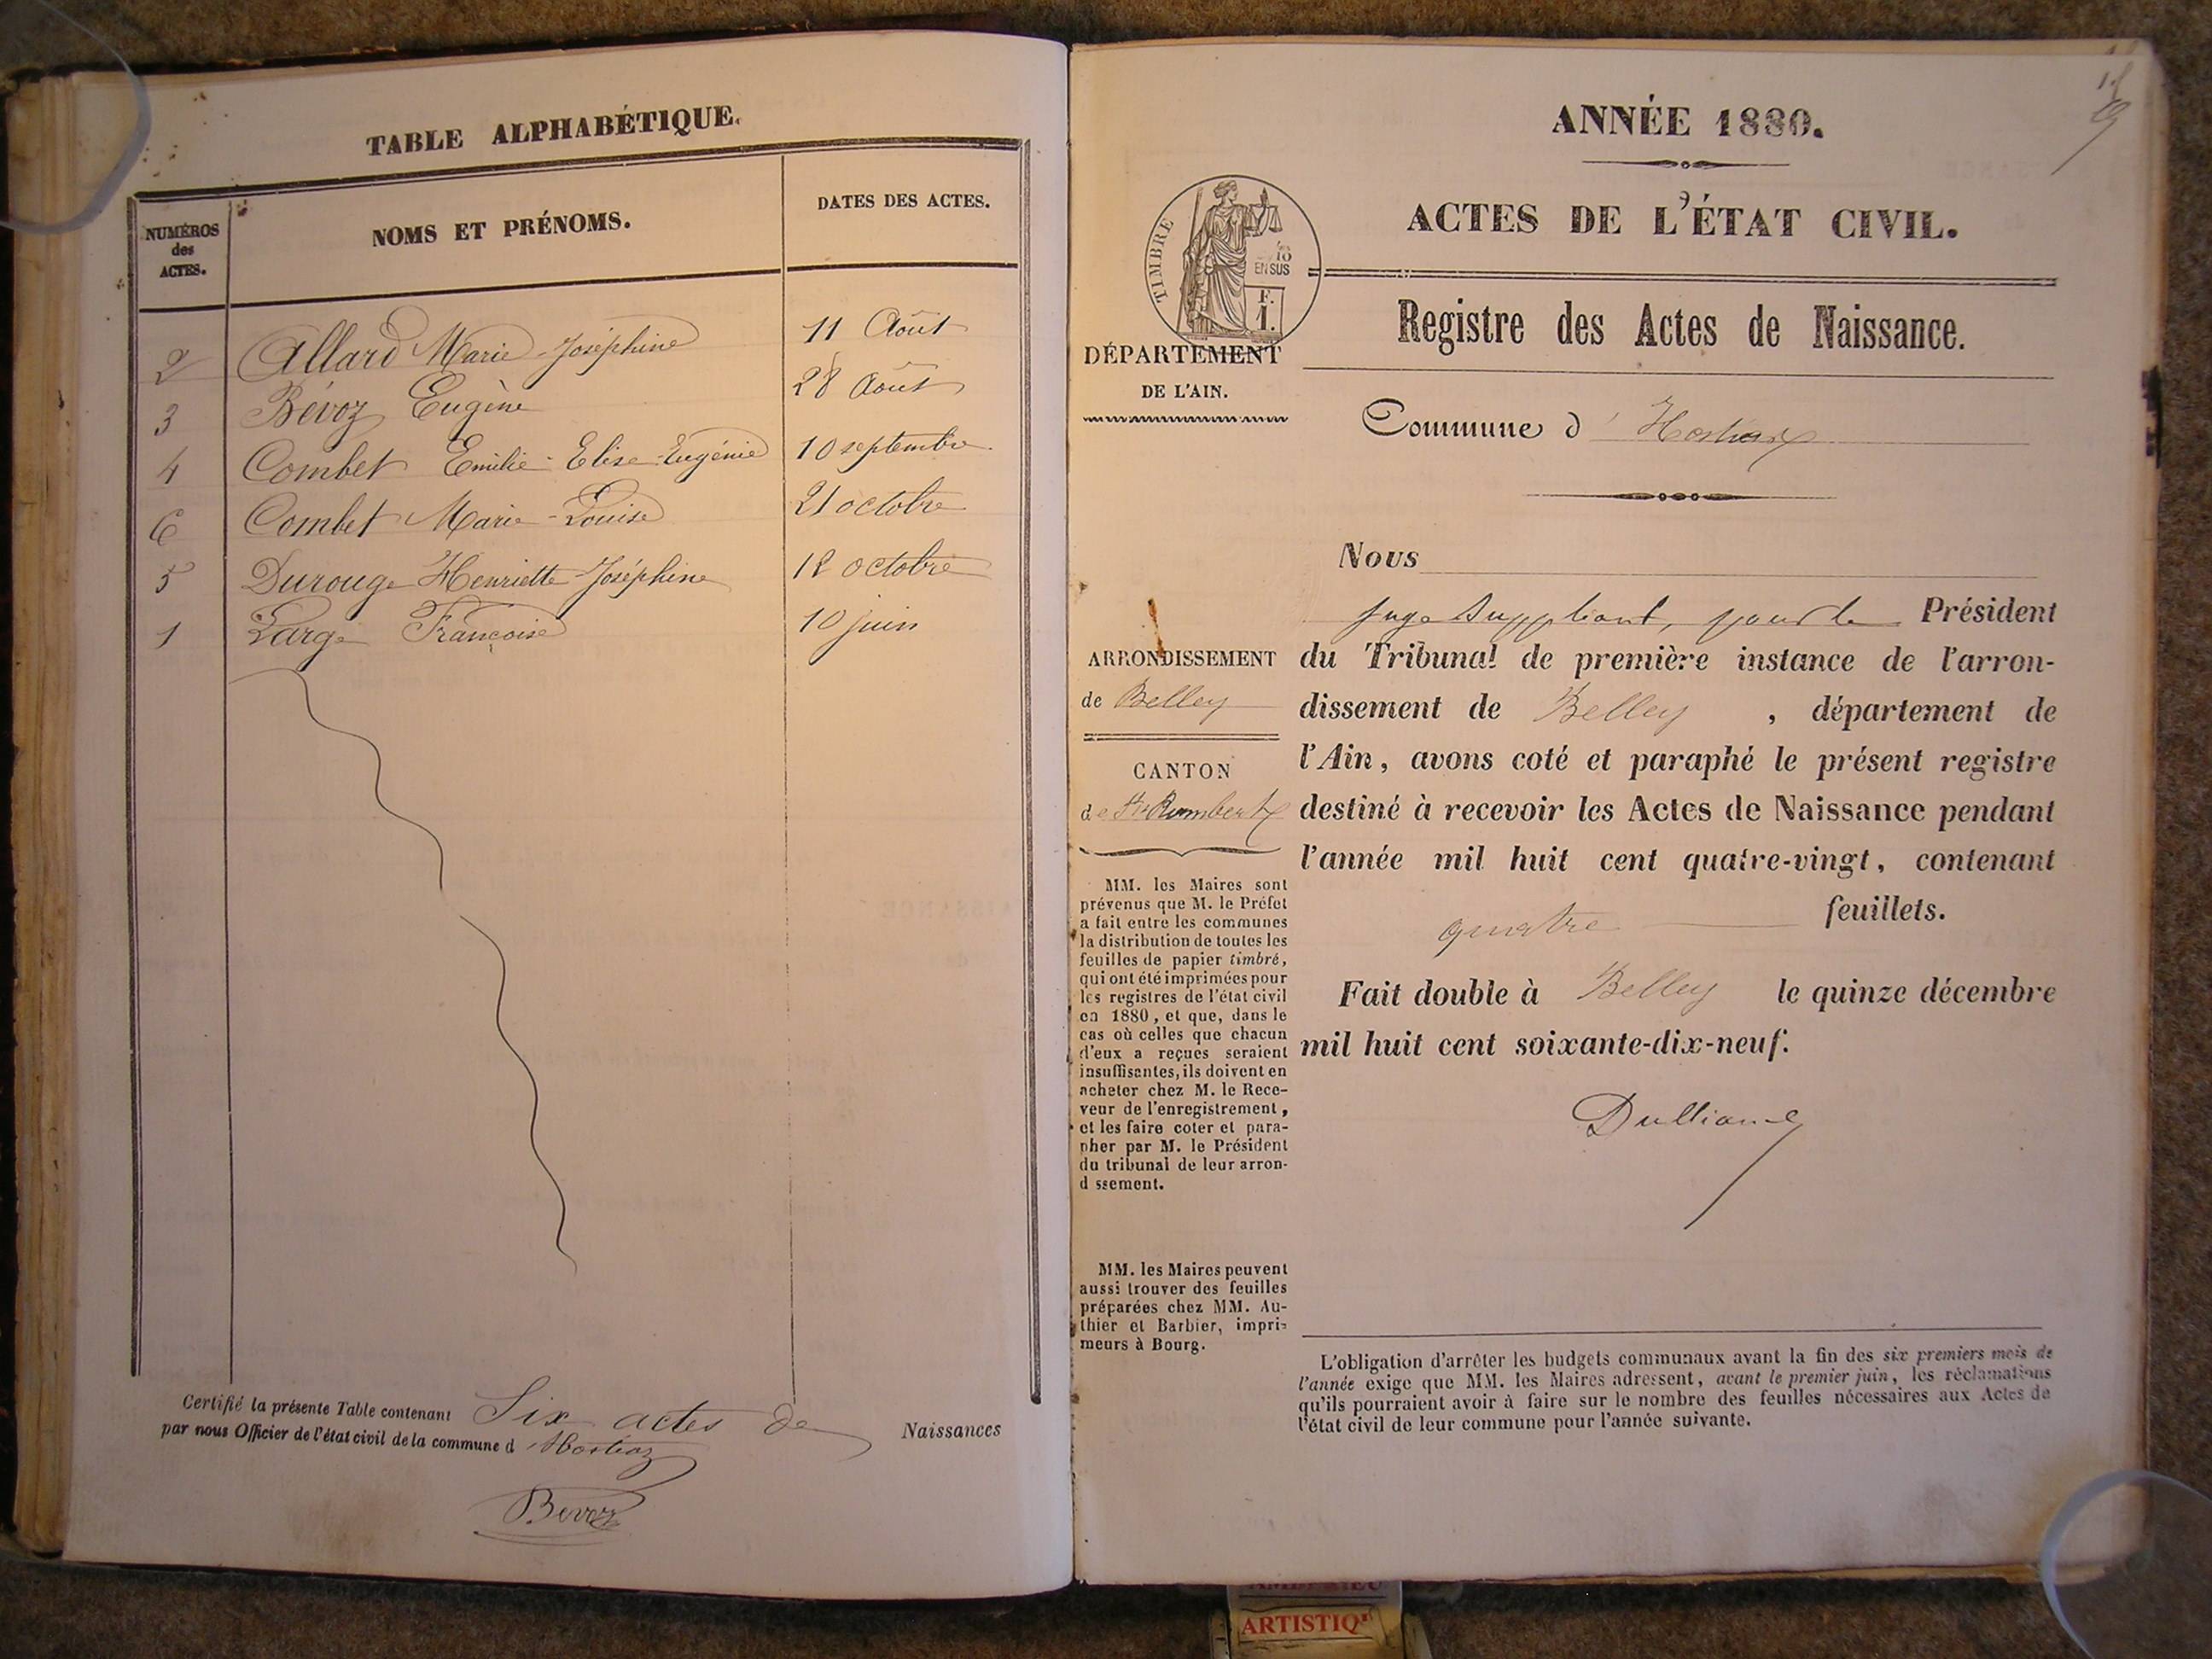 TABLE ALPHABÉTIQUE.
NUMÉROS des ACTES.
NOMS ET PRÉNOMS.
DATES DES ACTES.
2 Allard Marie-Joséphine 11 Août
3 Bévoz Eugène 28 Août
4 Combet Emilie-Elise-Eugénie 10 septembre
6 Combet Marie-Louise 21 octobre
5 Durouge Henriette-Joséphine 12 octobre
1 Large Françoise 10 juin
Certifié la présente Table contenant Six actes de Naissances
par nous Officier de l'état civil de la commune d Hostiaz
Bevoz
ANNÉE 1880.
ACTES DE L'ÉTAT CIVIL.
TIMBRE
10
EN SUS
F.
1.
DÉPARTEMENT
DE L'AIN.
Registre des Actes de Naissance.
Commune d' Hostiaz
Nous
Juge Suppléant, pour le Président
du Tribunal de première instance de l'arron-
dissement de Belley , département de
l'Ain, avons coté et paraphé le présent registre
destiné à recevoir les Actes de Naissance pendant
l'année mil huit cent quatre-vingt, contenant
quatre feuillets.
Fait double à Belley le quinze décembre
mil huit cent soixante-dix-neuf.
ARRONDISSEMENT
de Belley
CANTON
de St Rambert
MM. les Maires sont
prévenus que M. le Préfet
a fait entre les communes
la distribution de toutes les
feuilles de papier timbré,
qui ont été imprimées pour
les registres de l'état civil
en 1880, et que, dans le
cas où celles que chacun
d'eux a reçues seraient
insuffisantes, ils doivent en
acheter chez M. le Rece-
veur de l'enregistrement,
et les faire coter et para-
pher par M. le Président
du tribunal de leur arron-
d ssement.
MM. les Maires peuvent
aussi trouver des feuilles
préparées chez MM. Au-
thier et Barbier, impri-
meurs à Bourg.
L'obligation d'arrêter les budgets communaux avant la fin des six premiers mois de
l'année exige que MM. les Maires adressent, avant le premier juin, les réclamations
qu'ils pourraient avoir à faire sur le nombre des feuilles nécessaires aux Actes de
l'état civil de leur commune pour l'année suivante.
ARTISTIQ